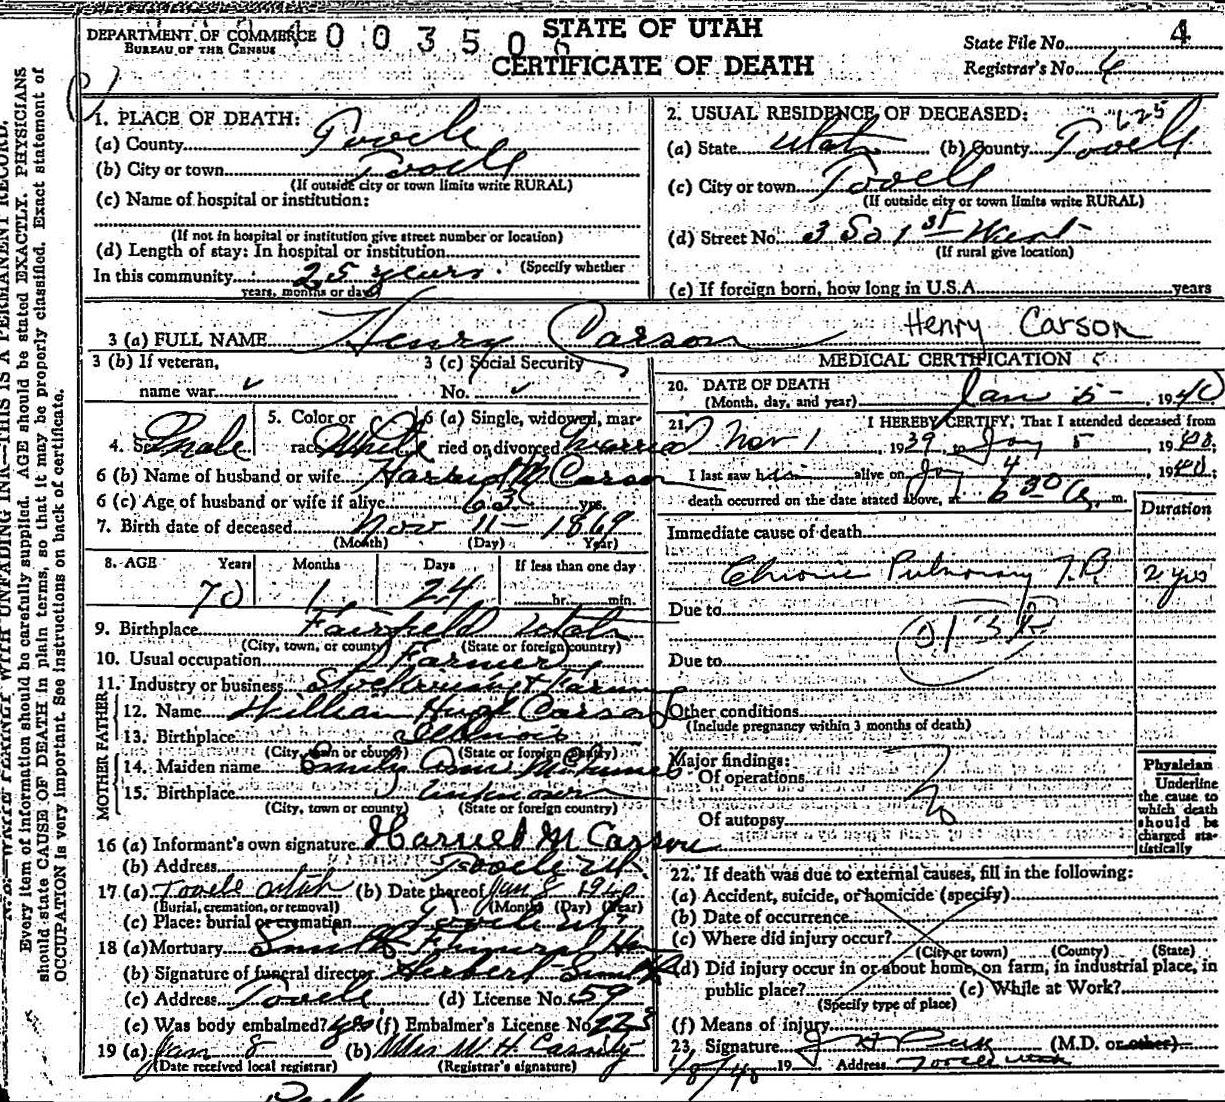 DEPARTMENT OF COMMERCE
BUREAU OF THE CENSUS
4003506
STATE OF UTAH
CERTIFICATE OF DEATH
State File No. 4
Registrar's No. 6
1. PLACE OF DEATH:
(a) County Tooele
(b) City or town Tooele
(If outside city or town limits write RURAL)
(c) Name of hospital or institution:
(If not in hospital or institution give street number or location)
(d) Length of stay: In hospital or institution
(Specify whether
In this community 25 years
years, months or days)
2. USUAL RESIDENCE OF DECEASED: 625
(a) State Utah (b) County Tooele
(c) City or town Tooele
(If outside city or town limits write RURAL)
(d) Street No. 3 So 1st West
(If rural give location)
(e) If foreign born, how long in U.S.A. years
3 (a) FULL NAME Henry Carson Henry Carson
3 (b) If veteran,
name war
3 (c) Social Security
No.
4. Sex Male
5. Color or
race White
6 (a) Single, widowed, mar-
ried or divorced Married
6 (b) Name of husband or wife Harriet M Carson
6 (c) Age of husband or wife if alive 63 yrs.
7. Birth date of deceased Nov 11 - 1869
(Month) (Day) (Year)
8. AGE Years Months Days If less than one day
70 1 24 hr. min.
9. Birthplace Fairfield Utah
(City, town, or county) (State or foreign country)
10. Usual occupation Farmer
11. Industry or business Stockman & Farming
FATHER
12. Name William Hugh Carson
13. Birthplace Illinois
(City, town or county) (State or foreign country)
MOTHER
14. Maiden name Emily Ann
15. Birthplace unknown
(City, town or county) (State or foreign country)
16 (a) Informant's own signature Harriet M Carson
(b) Address Tooele Ut.
17 (a) Tooele Utah (b) Date thereof Jan 8 1940
(Burial, cremation, or removal) (Month) (Day) (Year)
(c) Place: burial or cremation Tooele Ut
18 (a) Mortuary Smith Funeral
(b) Signature of funeral director Herbert Smith
(c) Address Tooele (d) License No. 59
(e) Was body embalmed? yes (f) Embalmer's License No. 223
19 (a) Jan 8 (b) Mrs W. H. Cassity
(Date received local registrar) (Registrar's signature)
MEDICAL CERTIFICATION
20. DATE OF DEATH
(Month, day, and year) Jan 5 - , 1940
21. I HEREBY CERTIFY, That I attended deceased from
Nov 1, 1939, to Jan 5, 1940,
I last saw him alive on Jan 4 1940;
death occurred on the date stated above, at 6 30 a. m.
Duration
Immediate cause of death
Chronic Pulmonary T.B. 2 yrs
Due to
Due to
Other conditions
(Include pregnancy within 3 months of death)
Major findings:
Of operations
Of autopsy
Physician
Underline
the cause to
which death
should be
charged sta-
tistically
22. If death was due to external causes, fill in the following:
(a) Accident, suicide, or homicide (specify)
(b) Date of occurrence
(c) Where did injury occur?
(City or town) (County) (State)
(d) Did injury occur in or about home, on farm, in industrial place, in
public place? (e) While at Work?
(Specify type of place)
(f) Means of injury
23. Signature J H Peck (M.D. or other)
1/8/40 19 Address Tooele Utah
Peck
N.B.—WRITE PLAINLY WITH UNFADING INK—THIS IS A PERMANENT RECORD.
Every item of information should be carefully supplied. AGE should be stated EXACTLY. PHYSICIANS
should state CAUSE OF DEATH in plain terms, so that it may be properly classified. Exact statement of
OCCUPATION is very important. See instructions on back of certificate.